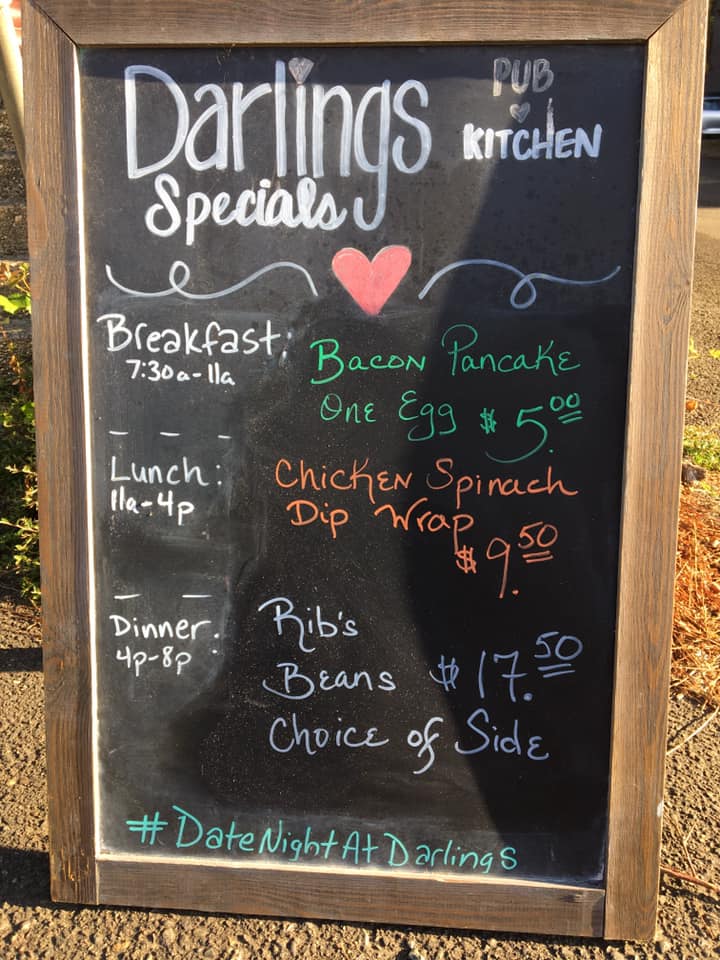 Darlings
PUB
KITCHEN
Specials
Breakfast:
7:30a-11a
Bacon Pancake
One Egg $5.00
Lunch:
11a-4p
Chicken Spinach
Dip Wrap
$9.50
Dinner:
4p-8p
Rib's
Beans $17.50
Choice of Side
#DateNightAtDarlings